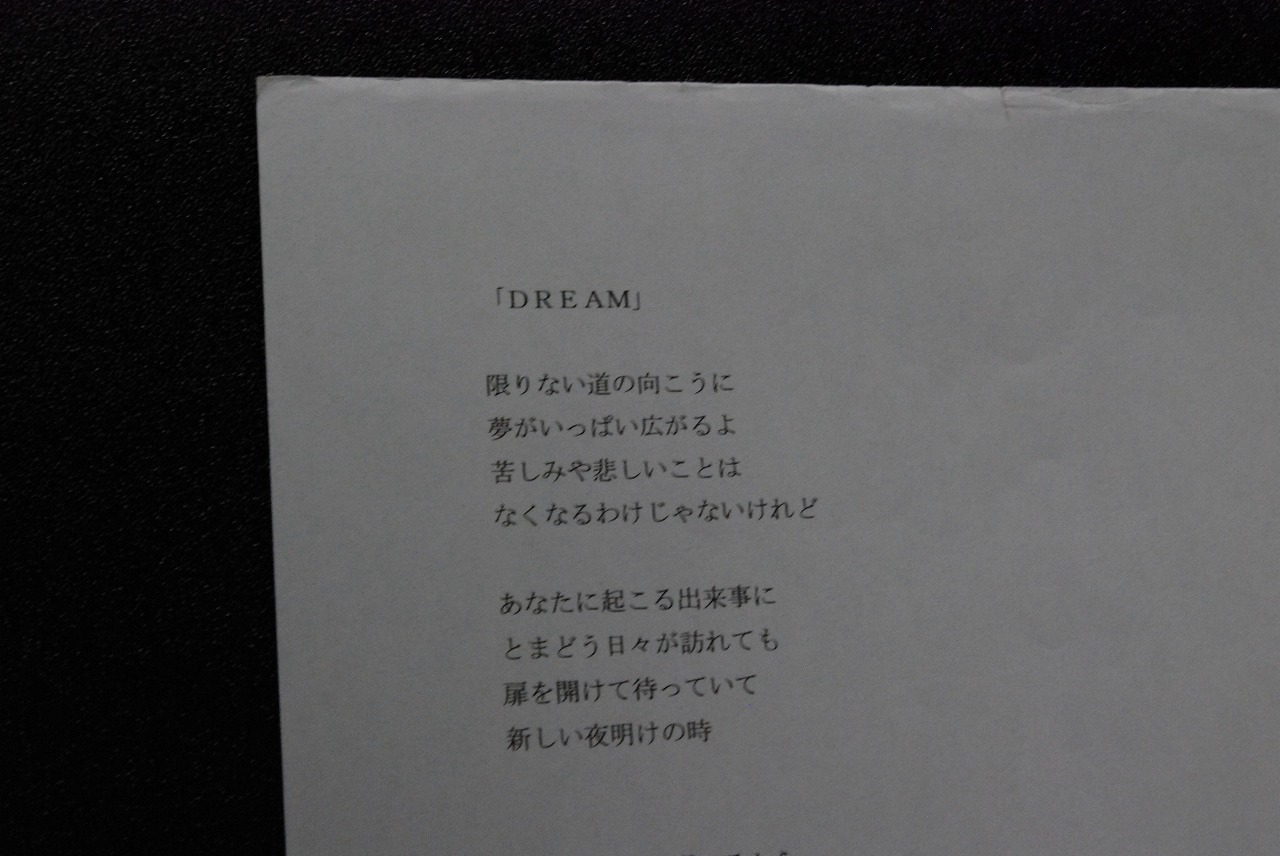 「DREAM」
限りない道の向こうに
夢がいっぱい広がるよ
苦しみや悲しいことは
なくなるわけじゃないけれど
あなたに起こる出来事に
とまどう日々が訪れても
扉を開けて待っていて
新しい夜明けの時